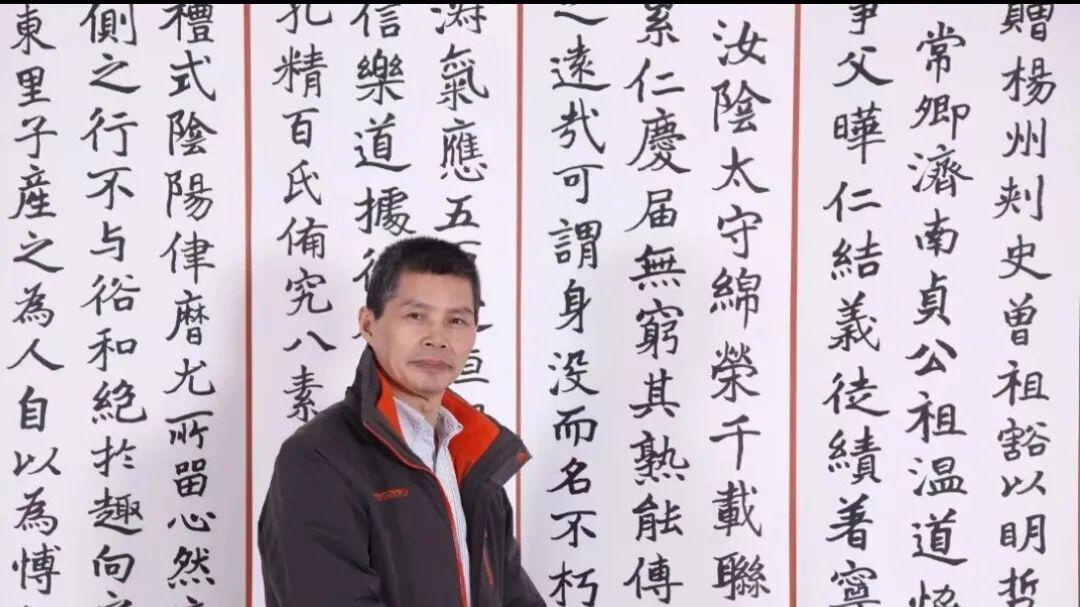 贈楊州刾史曾祖豁以明哲
常卿濟南貞公祖温道
爭父曄仁結義徒績著寧
汝陰太守綿榮千載聯
累仁慶届無窮其熟能傳
之遠㢤可謂身没而名不朽
氣應五
信樂道據
孔精百氏俻究八素
禮式陰陽律曆尤所留心然
側之行不与俗和絶扵趣向
東里子產之為人自以為愽